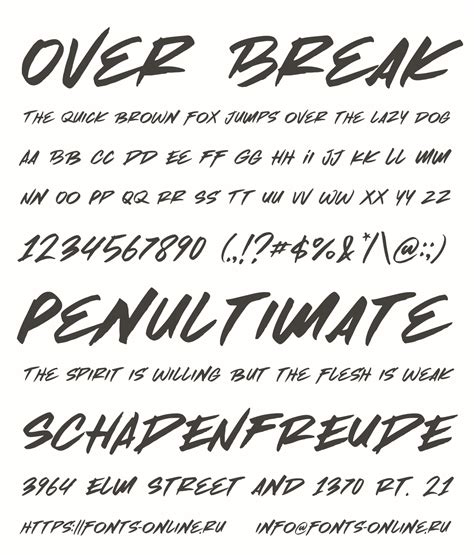 OVER BREAK
THE QUICK BROWN FOX JUMPS OVER THE LAZY DOG
AA BB CC DD EE FF GG HH ii JJ KK LL MM
NN OO PP QQ RR SS TT UU VV WW XX YY ZZ
1234567890 (.,!?#$%&*/|\@:;)
PENULTIMATE
THE SPIRIT IS WILLING BUT THE FLESH IS WEAK
SCHADENFREUDE
3964 ELM STREET AND 1370 RT. 21
HTTPS://FONTS-ONLINE.RU INFO@FONTS-ONLINE.RU